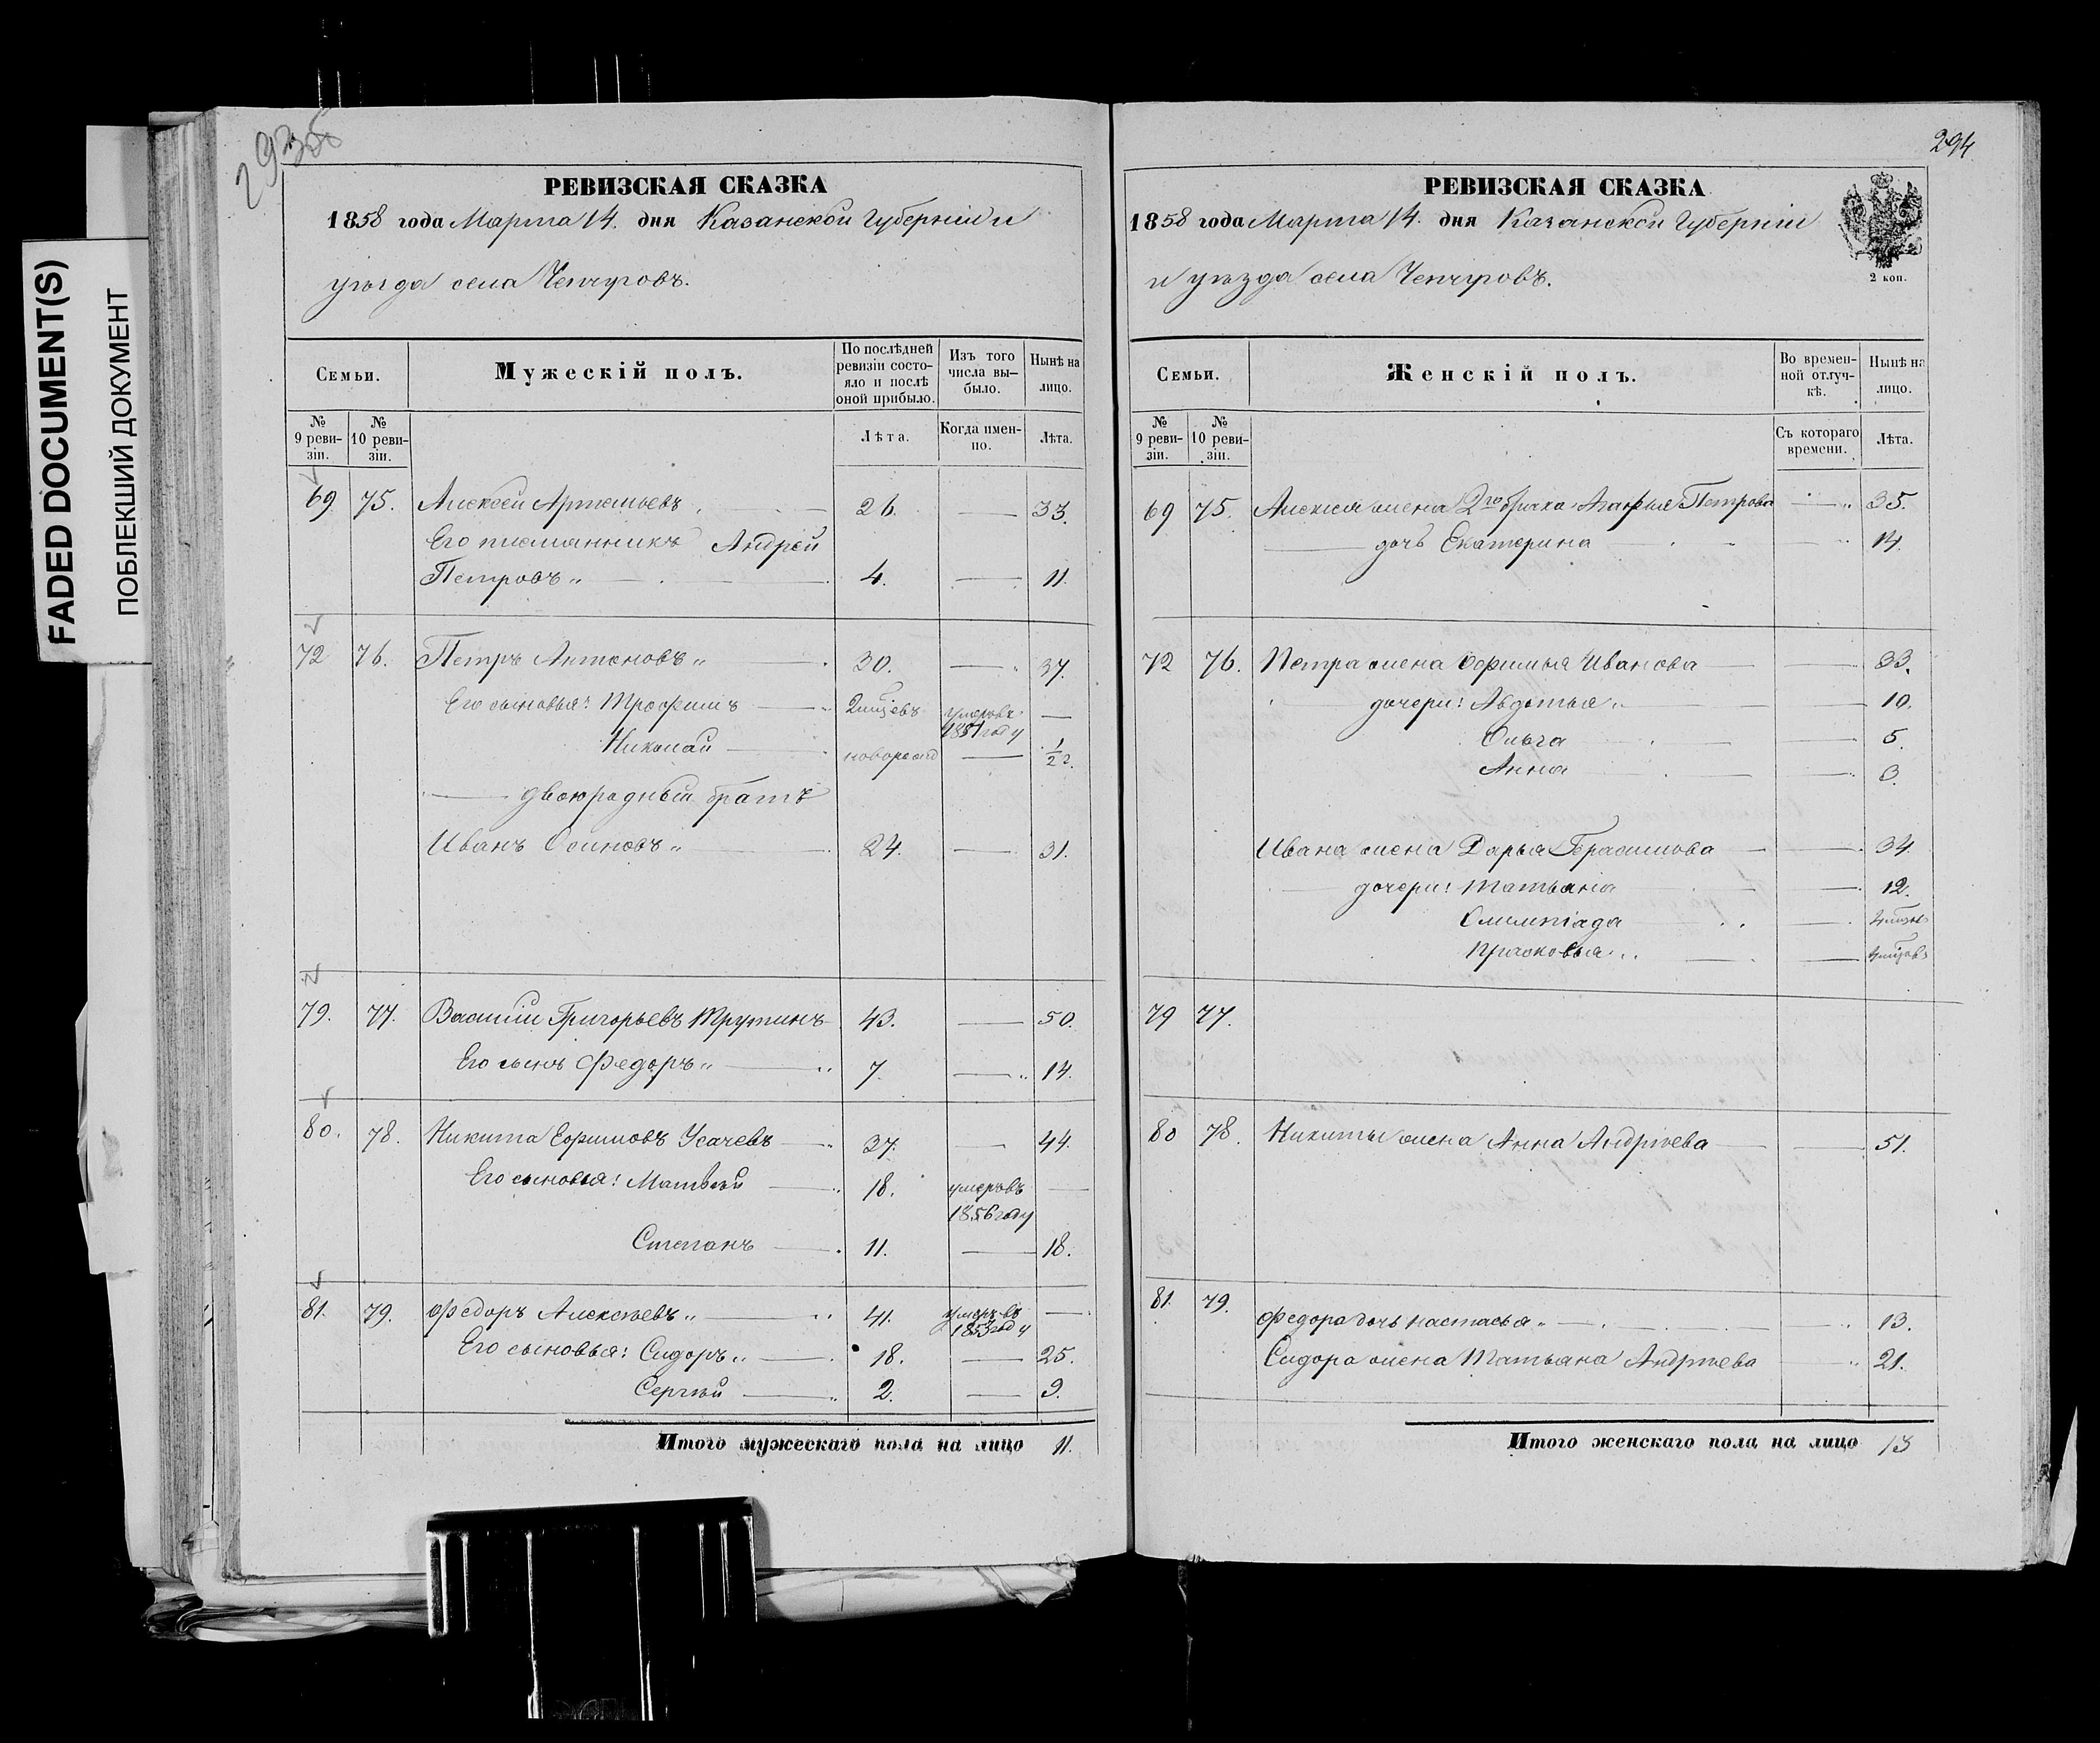 FADED DOCUMENT(S)
ПОБЛЕКШИЙ ДОКУМЕНТ
РЕВИЗСКАЯ СКАЗКА
1858 года Марта 14. дня Казанской Губерніи и
уѣзда села Чепчуровъ.
Семьи.
Мужескій полъ.
По послѣдней ревизіи состояло и послѣ оной прибыло.
Изъ того числа выбыло.
Нынѣ на лицо.
№ 9 ревизіи.
№ 10 ревизіи.
Лѣта.
Когда именно.
Лѣта.
69 75. Алексей Артемьевъ 26. — 33.
Его племянникъ Андрей
Петровъ „ — 4. — 11.
72 76. Петръ Антоновъ „ — 30. — 37.
Его сыновья: Трофимъ — умеръ въ 1851 году —
Николай — новорожд — 1/2 г.
— двоюродный братъ
Иванъ Осиповъ „ — 24. — 31.
79. 77. Василій Григорьевъ Трутинъ 43. — 50.
Его сынъ Федоръ „ — 7. — 14.
80. 78. Никита Ефимовъ Усачевъ — 37. — 44.
Его сыновья: Матвѣй — 18. умеръ въ 1856 году —
Степанъ — 11. — 18.
81. 79. Федоръ Алексѣевъ „ — 41. умеръ въ 1853 году —
Его сыновья: Сидоръ „ — 18. — 25.
Сергѣй — 2. — 9.
Итого мужескаго пола на лицо 11.
294
РЕВИЗСКАЯ СКАЗКА
1858 года Марта 14. дня Казанской Губерніи
и уѣзда села Чепчуровъ.
2 коп.
Семьи.
Женскій полъ.
Во временной отлучкѣ.
Нынѣ на лицо.
№ 9 ревизіи.
№ 10 ревизіи.
Съ котораго времени.
Лѣта.
69 75. Алексея жена 2го брака Агафья Петрова — 35.
— дочь Екатерина — 14.
72 76. Петра жена Ефимья Иванова — 33.
дочери: Авдотья „ — 10.
Ольга — 5.
Анна — 3.
Ивана жена Дарья Герасимова — 34.
— дочери: Татьяна — 12.
Олимпіада —
Прасковья „ —
79 77.
80 78. Никиты жена Анна Андрѣева — 51.
81. 79. Федора дочь Настасья „ — 13.
Сидора жена Татьяна Андрѣева 21.
Итого женскаго пола на лицо 13